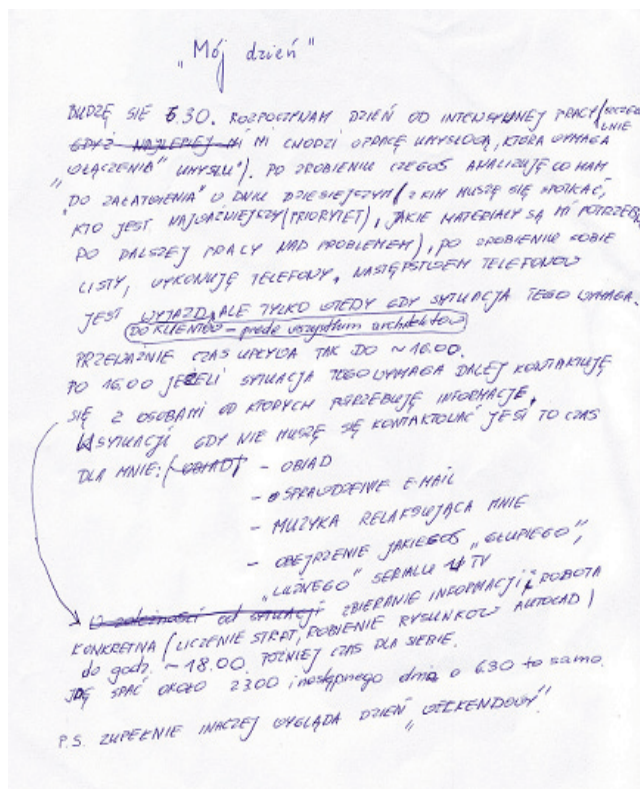 „Mój dzień"
BUDZĘ SIĘ 6.30. ROZPOCZYNAM DZIEŃ OD INTENSYWNEJ PRACY (SZCZEGÓLNIE
GDYŻ NAJLEPIEJ MI CHODZI O PRACĘ UMYSŁOWĄ, KTÓRA WYMAGA
„WŁĄCZENIA" UMYSŁU"). PO ZROBIENIU CZEGOŚ ANALIZUJĘ CO MAM
„DO ZAŁATWIENIA" W DNIU DZISIEJSZYM (Z KIM MUSZĘ SIĘ SPOTKAĆ,
KTO JEST NAJWAŻNIEJSZY (PRIORYTET), JAKIE MATERIAŁY SĄ MI
DO DALSZEJ PRACY NAD PROBLEMEM), PO ZROBIENIU SOBIE
LISTY, WYKONUJĘ TELEFONY, NASTĘPSTWEM TELEFONÓW
JEST WYJAZD, ALE TYLKO WTEDY GDY SYTUACJA TEGO WYMAGA.
DO KLIENTÓW – prede wszystkim architektów
PRZEWAŻNIE CZAS UPŁYWA TAK DO ~ 16.00.
PO 16.00 JEŻELI SYTUACJA TEGO WYMAGA DALEJ KONTAKTUJĘ
SIĘ Z OSOBAMI OD KTÓRYCH POTRZEBUJĘ INFORMACJE.
W SYTUACJI GDY NIE MUSZĘ SIĘ KONTAKTOWAĆ JEST TO CZAS
DLA MNIE: (OBIAD) – OBIAD
– SPRAWDZENIE E-MAIL
– MUZYKA RELAKSUJĄCA MNIE
– OBEJRZENIE JAKIEGOŚ „GŁUPIEGO",
„LUŹNEGO" SERIALU W TV
W zależności od sytuacji ZBIERANIE INFORMACJI i ROBOTA
KONKRETNA (LICZENIE STRAT, ROBIENIE RYSUNKÓW AUTOCAD)
do godz. ~ 18.00. PÓŹNIEJ CZAS DLA SIEBIE.
IDĘ SPAĆ OKOŁO 23.00 i następnego dnia o 6.30 to samo.
P.S. ZUPEŁNIE INACZEJ WYGLĄDA DZIEŃ „WEEKENDOWY".